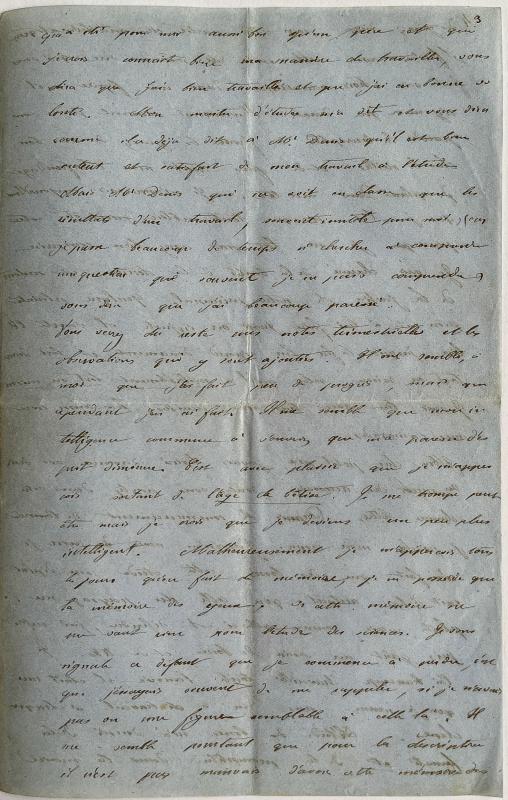 3
qui a été pour moi aussi bon qu'un père et qui
je crois connait bien ma manière de travailler, vous
dira que j'ai bien travaillé et que j'ai eu bonne vo
lonté. Mon maître d'études m'a dit et vous dira
comme il a déja dit à Mr. Denis qu'il est bien
content et satisfait de mon travail à l'étude
Mais Mr Denis qui ne voit en classe que les
résultats d'un travail, souvent inutile pour moi, (car
je passe beaucoup de temps à chercher à comprendre
une question que souvent je ne puis comprendre)
vous dira que j'ai beaucoup paressé.
Vous verrez du reste mes notes trimestrielles et les
observations qui y sont ajoutées. Il me semble, à
moi que j'ai fait peu de progrès mais que
cependant j'en ai fait. Il me semble que mon in
telligence commence à s'ouvrir, que ma paresse d'es
prit diminue. C'est avec plaisir que je m'apper
cois sortant de l'âge de bêtise. Je me trompe peut
être mais je crois que je deviens un peu plus
intelligent. Malheureusement je m'apperçois tous
les jours qu'en fait de mémoire, je ne possède que
la mémoire des yeux; et cette mémoire ne
me vaut rien pour l'étude des sciences. Je vous
signale ce défaut que je commence à perdre, c'est
que j'essayais souvent de me rappeler, si je n'avais
pas vu une figure semblable à celle là. Il
me semble pourtant que pour la descriptive
il n'est pas mauvais d'avoir cette mémoire des